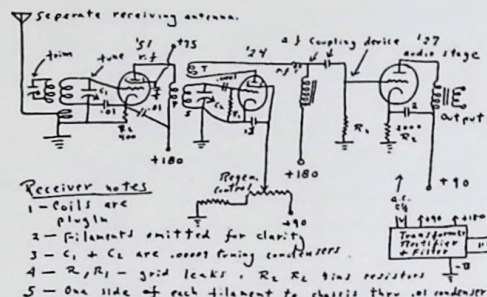 Separate receiving antenna.
trim
tune
'51
r.f
+75
'24
a f coupling device
'27
audio stage
T
.0001
r.f.c
C1
C2
.01
.01
R2
400
5
R1
2
2000
R2
Output
+180
+180
+90
Regen.
Control
+90
a.c.
+90
+180
Transformer
Rectifier
+ Filter
-B
Receiver notes
1 - Coils are
plugin
2 - Filaments omitted for clarity
3 - C1 + C2 are .00009 tuning condensers
4 - R, R1 - grid leaks, R2 R2 bias resistors
5 - One side of each filament to chassis thru .01 condenser